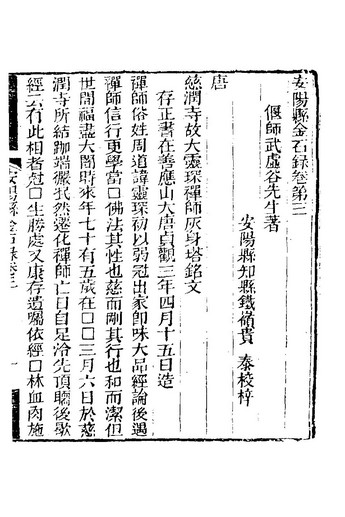 安陽縣金石錄卷第三
偃師武虛谷先生著
安陽縣知縣鐵嶺貴 泰校梓
唐
慈潤寺故大靈琛禪師灰身塔銘文
存正書在善應山大唐貞觀三年四月十五日造
禪師俗姓周道諱靈琛初以弱冠出家卽味大品經論後遇
禪師信行更學當□佛法其性也慈而剛其行也和而潔但
世閒福盡大闇時來年七十有五歲在□□三月六日於慈
潤寺所結跏端儼㧞然遷化禪師亡日自足冷先頂暖後歇
經云有此相者□□生勝處又康存遺囑依經□林血肉施
安陽縣金石錄卷三
一